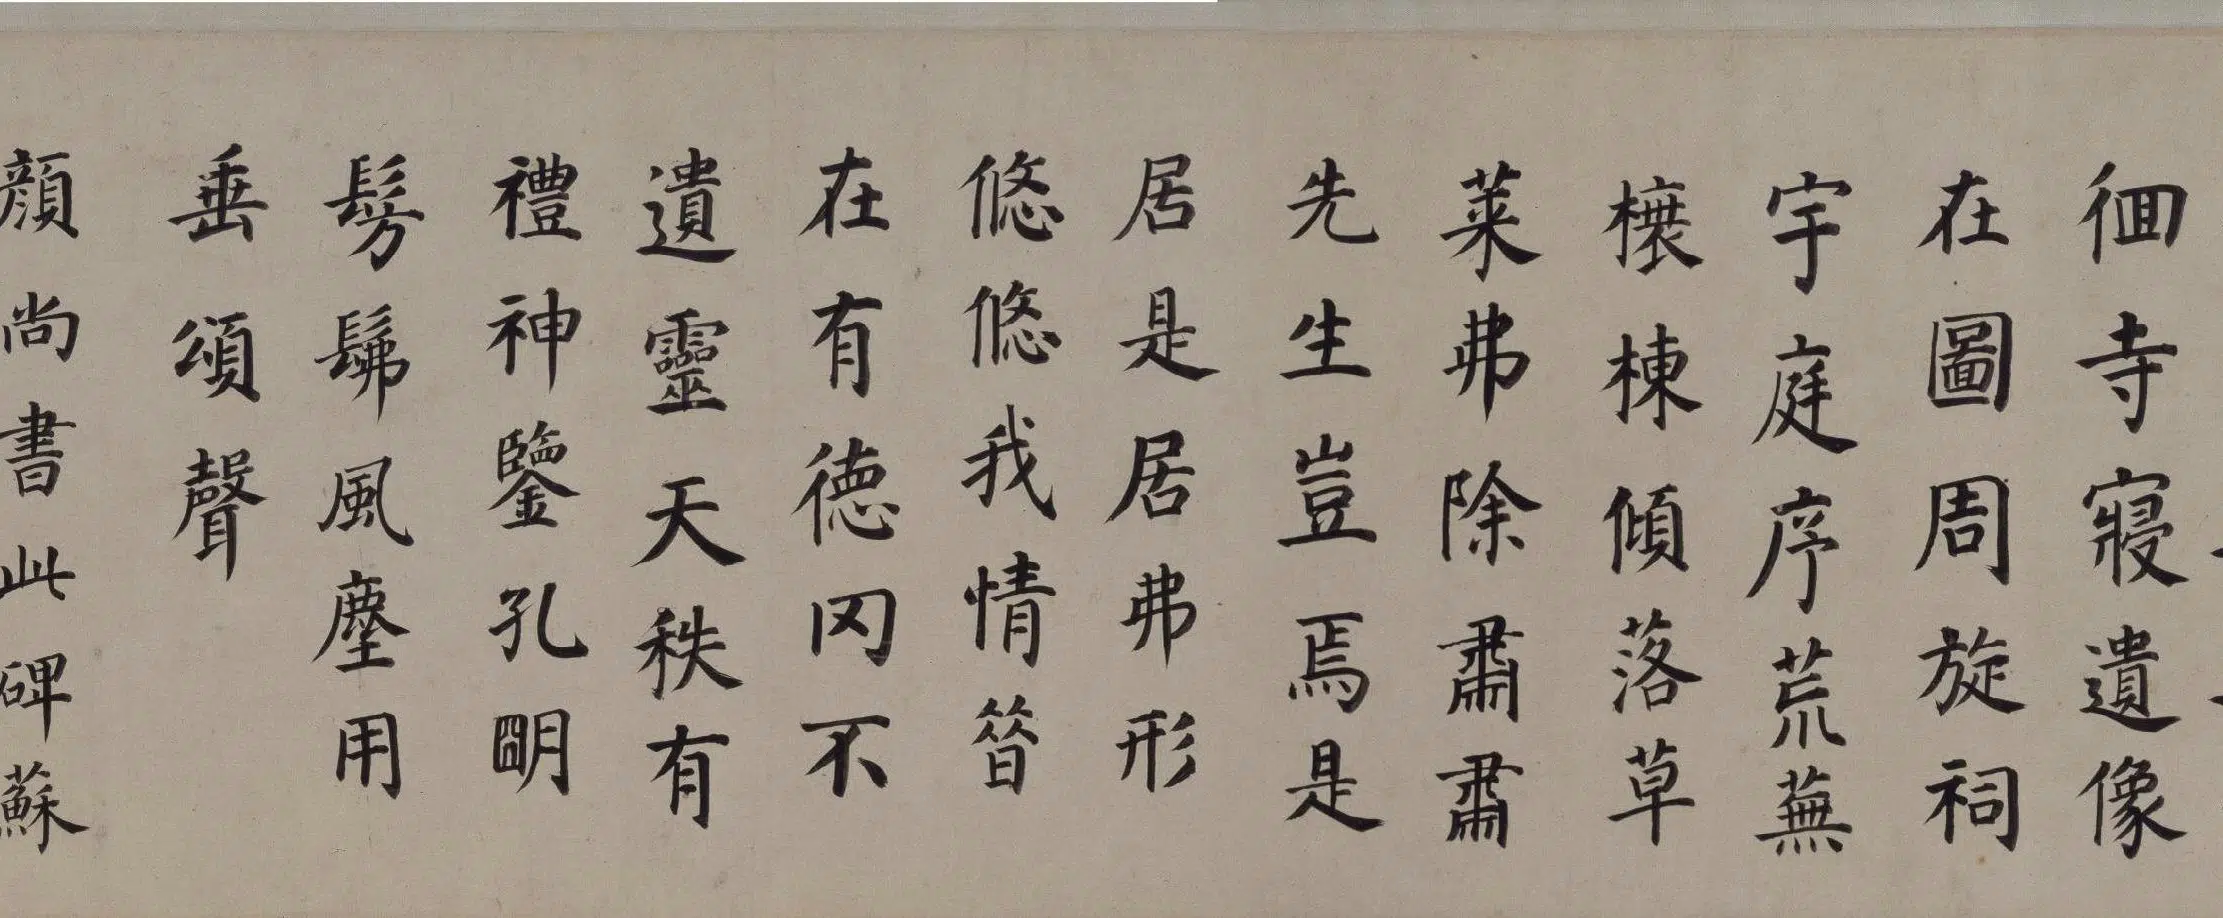 徊寺寢遺像
在圖周旋祠
宇庭序荒蕪
榱棟傾落草
萊弗除肅肅
先生豈焉是
居是居弗形
悠悠我情昝
在有德罔不
遺靈天秩有
禮神鑒孔明
髣髴風塵用
垂頌聲
顏尚書此碑蘇